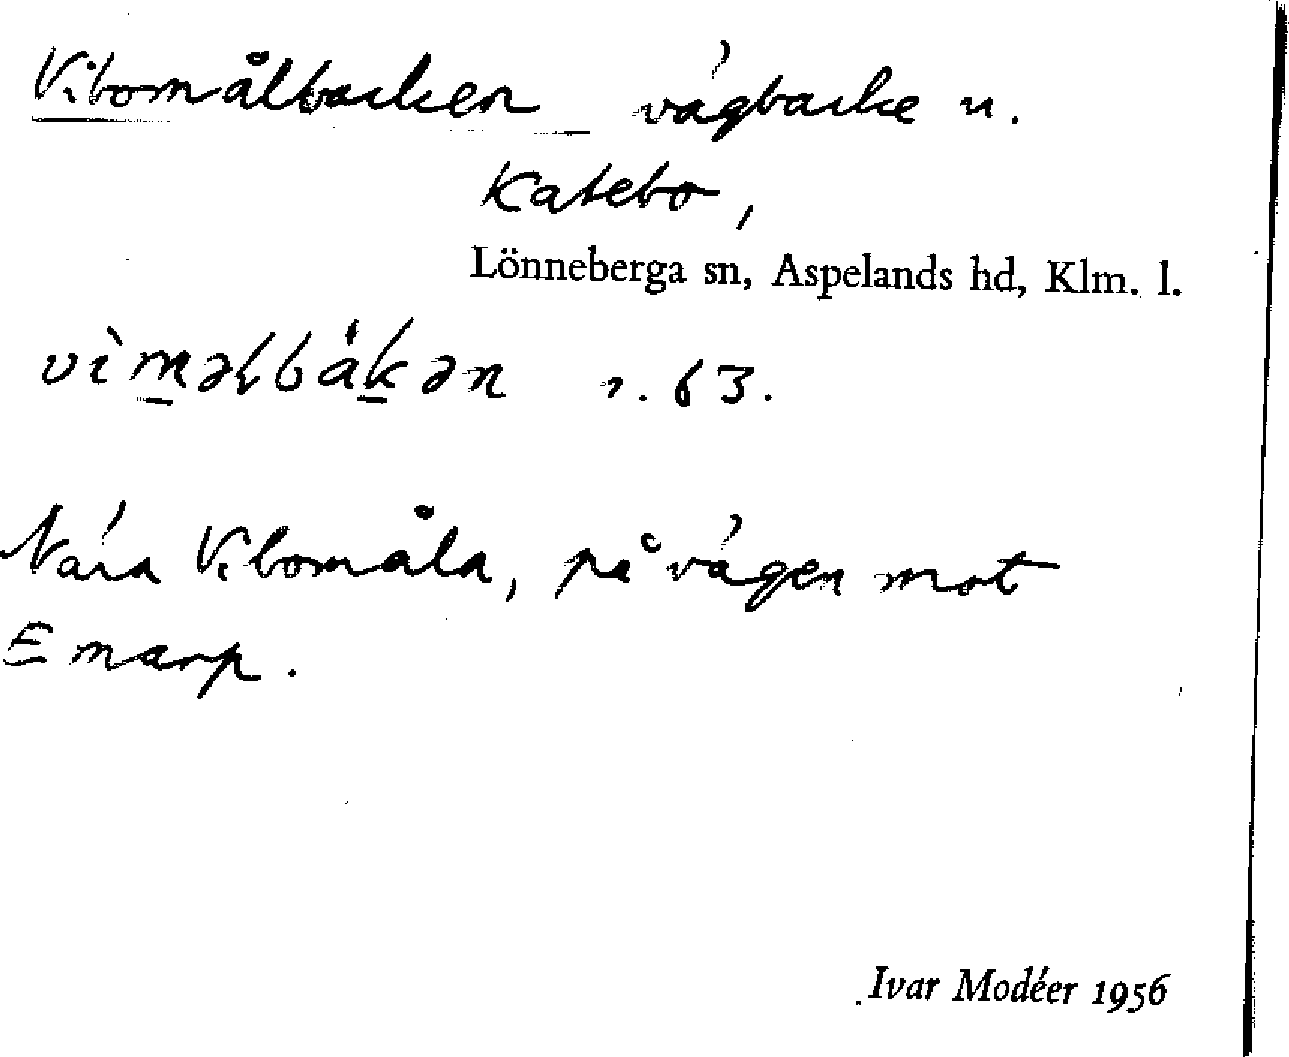 Vibomålbacken vägbacke u.
Katebo,
Lönneberga sn, Aspelands hd, Klm. l.
vìm̲əɫbák̲ən 1. 63.
Nära Vibomåla, på vägen mot
Emarp.
Ivar Modéer 1956